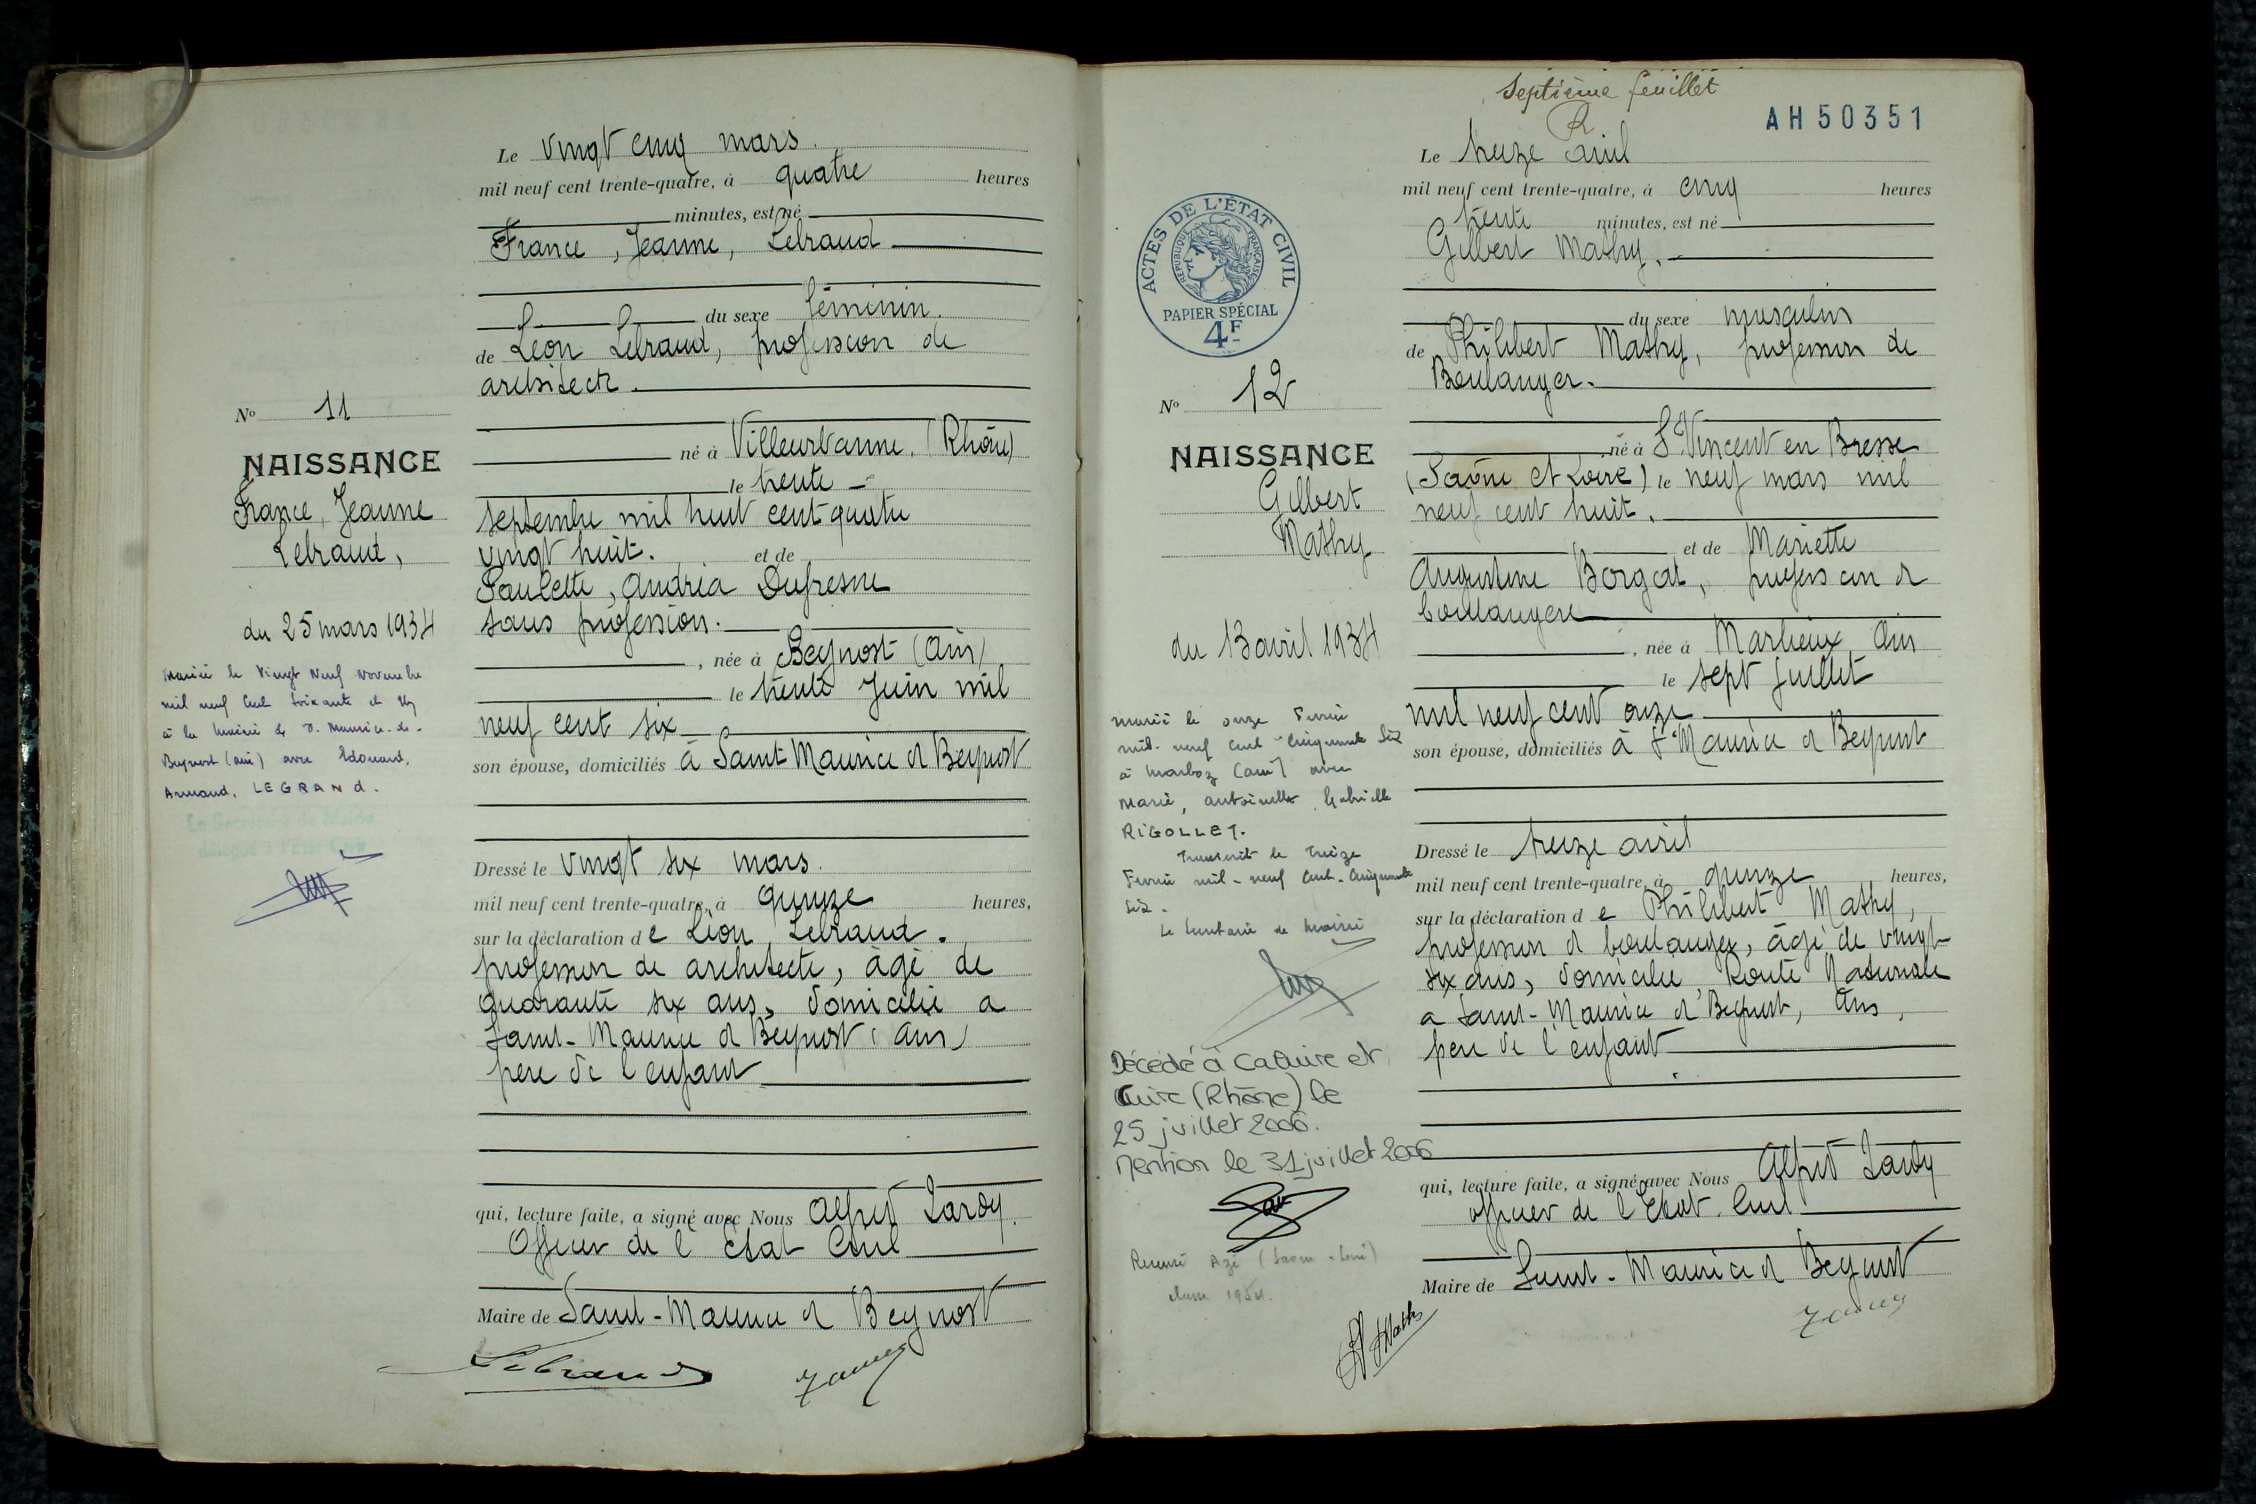 Le vingt cinq mars.
mil neuf cent trente-quatre, à quatre heures
minutes, est né
France, Jeanne, Lebraud
du sexe féminin.
de Léon Lebraud, profession de
architecte.
né à Villeurbanne. (Rhône)
le trente
septembre mil huit cent quatre
vingt huit. et de
Paulette, Andréa Dufresne
sans profession.
, née à Beynost (Ain)
le trente Juin mil
neuf cent six
son épouse, domiciliés à Saint-Maurice d Beynost
Dressé le vingt six mars.
mil neuf cent trente-quatre, à quinze heures,
sur la déclaration de Léon Lebraud.
profession de architecte, âgé de
quarante six ans, domicilié a
Saint-Maurice d Beynost (Ain)
père de l'enfant
qui, lecture faite, a signé avec Nous Alfred Jardy.
Officier de l'Etat Civil
Maire de Saint-Maurice d Beynost
Lebraud
No 11
NAISSANCE
France, Jeanne
Lebraud,
du 25 mars 1934
Marié le Vingt Neuf Novembre
mil neuf Cent soixante et un
à la Mairie de St. Maurice-de-
Beynost (Ain) avec Edouard,
Armand, LEGRAND.
Le Secrétaire de Mairie
délégué à l'Etat Civil
Septième feuillet
AH50351
Le treize Avril
mil neuf cent trente-quatre, à cinq heures
trente minutes, est né
Gilbert Mathy.
du sexe masculin
de Philibert Mathy, profession de
Boulanger.
né à St Vincent en Bresse
(Saône et Loire) le neuf mars mil
neuf cent huit.
et de Mariette
Augustine Borgat, profession d
boulangère
, née à Marlieux Ain
le sept Juillet
mil neuf cent onze
son épouse, domiciliés à St Maurice d Beynost
Dressé le treize avril
mil neuf cent trente-quatre, à quinze heures,
sur la déclaration de Philibert Mathy,
profession d boulanger, âgé de vingt
six ans, domicilié Route Nationale
a Saint-Maurice d'Beynost, Ain,
père de l'enfant
qui, lecture faite, a signé avec Nous Alfred Jardy
officier de l'Etat Civil
Maire de Saint-Maurice d Beynost
ACTES DE L'ÉTAT CIVIL
RÉPUBLIQUE FRANÇAISE
PAPIER SPÉCIAL
4F
No 12
NAISSANCE
Gilbert
Mathy
du 13 avril 1934
Marié le onze Février
mil-neuf Cent-Cinquante Six
à Marboz (Ain) avec
Marie, Antoinette, Gabrielle
RIGOLLET.
Transcrit le Treize
Février mil-neuf Cent-Cinquante
Six.
Le Secrétaire de Mairie
Décédé à Caluire et
Cuire (Rhône) le
25 juillet 2006.
Mention le 31 juillet 2006
Recensé Azé (Saone-Loire)
classe 1954.